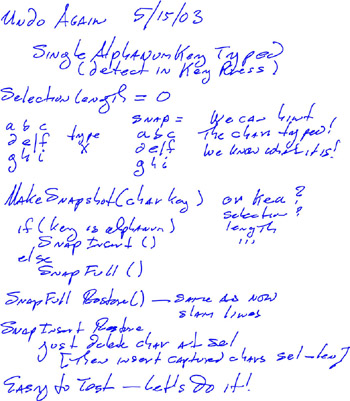 Undo Again 5/15/03
Single Alphanum Key Typed
(detect in Key Press)
Selection Length = 0
a b c type snap = We can hint
d e|f x a b c The char typed!
g h i d e|f We know where it is!
g h i
MakeSnapshot(char key) or Kea?
if (key is alphanum) selection?
SnapInsert() length
else !!!
SnapFull()
SnapFull Restore() — same as now
slam lines
SnapInsert Restore
just delete char at sel
[Then insert captured chars sel-len]
Easy to Test — Let's do it!